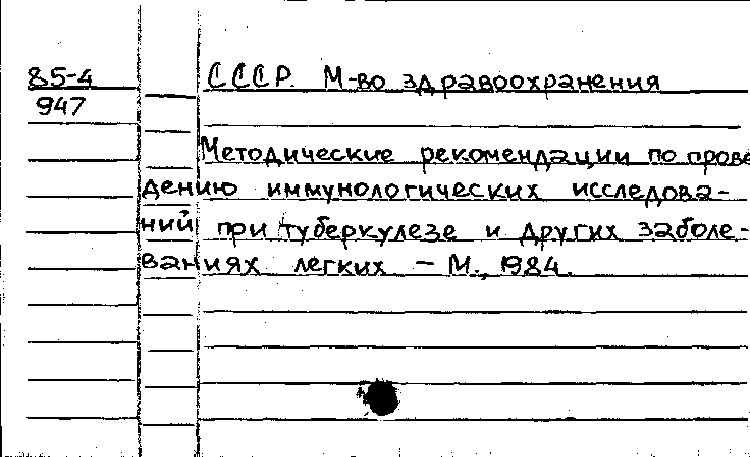 85-4
СССР. М-во здравоохранения
947
Методические рекомендации по прове
дению иммунологических исследова-
ний при туберкулезе и других заболе-
ваниях легких - М., 1984.